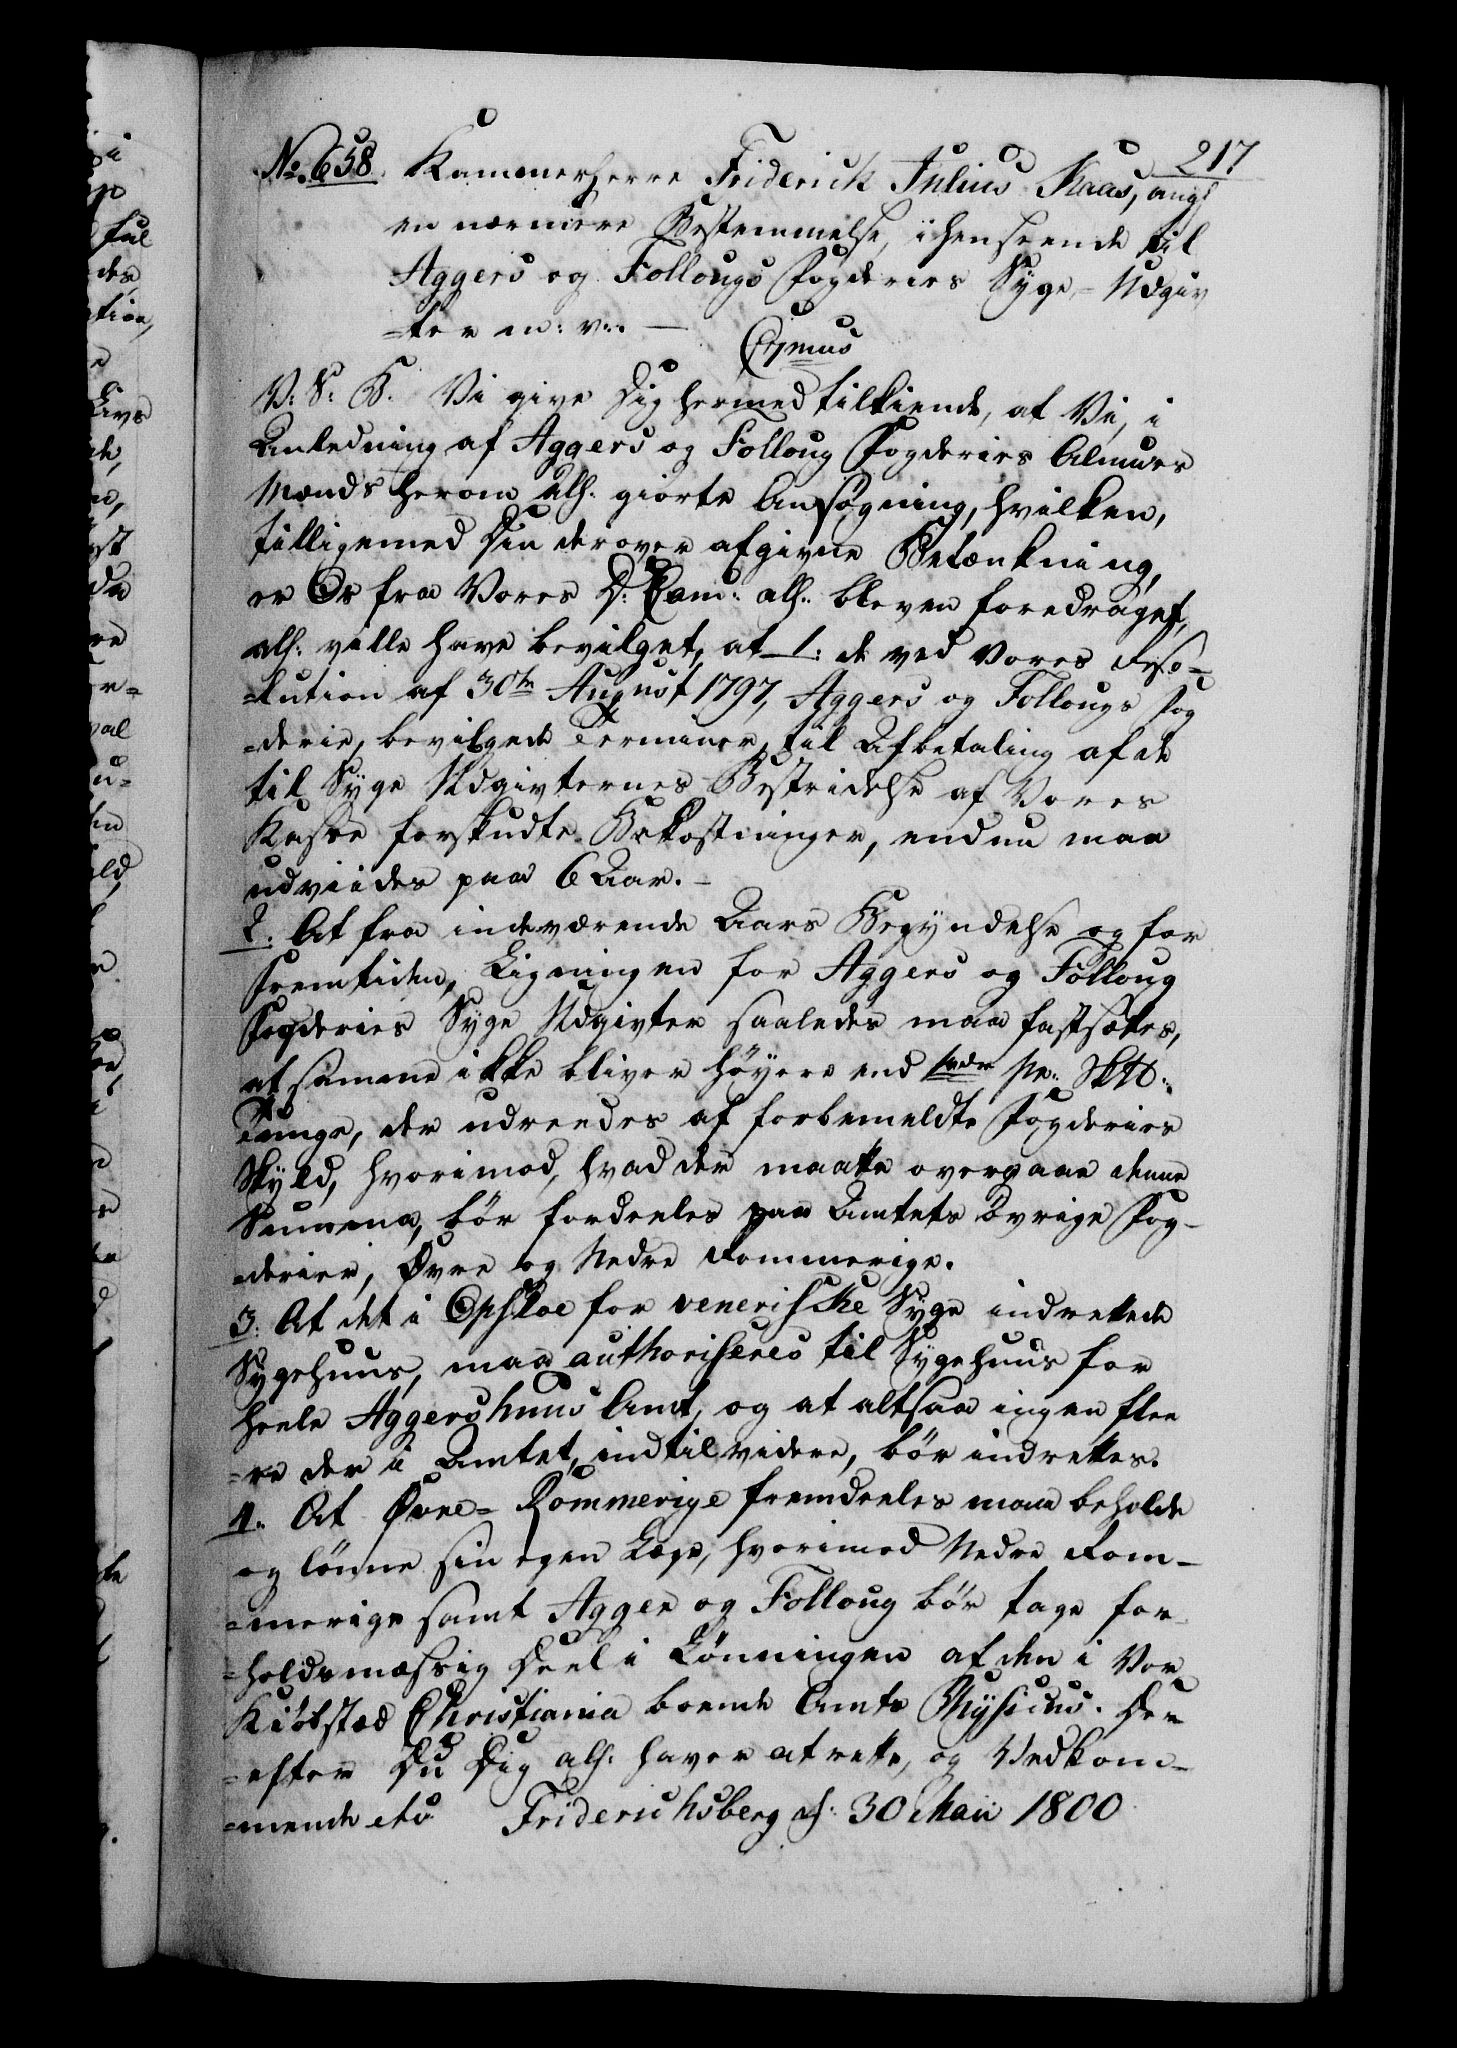 217
No. 658. Kammerherre Friderich Julius Kaas, angd
en nærmere Bestemmelse, i henseende til
Aggers og Follougs Fogderies Syge-Udgiv
=ter m: v:.
C 7mus
V: S: B. Vi give Dig hermed tilkiende, at Vi, i
Anledning af Aggers og Folloug Fogderies Almues
Mænds herom alh: giorte Ansøgning, hvilken,
tilligemed Din derover afgivne Betænkning,
er Os fra Vores D: Cam: alh: bleven foredraget,
alh: ville have bevilget, at 1: de ved Vores Reso=
=lution af 30te August 1797, Aggers og Follougs Fog
=derie, bevilgede Terminer, til Afbetaling af de
til Syge Udgivternes Bestridelse af Vores
Kasse forskudte Bekostninger, endnu maa
udviides paa 6 Aar.
2. At fra indeværende Aars Begyndelse og for
Fremtiden, Ligningen for Aggers og Folloug
Fogderies Syge Udgivter saaledes maa fastsættes,
at samme ikke bliver høyere end pr: Skpd:
Tunge, der udreedes af forbemeldte Fogderies
Skyld, hvorimod, hvad der maatte overgaae denne
Summa, bør fordeeles paa Amtets øvrige Fog=
=derier, Øvre og Nedre Rommerige.
3. At det i Opsloe for veneriske Syge indrettede
Sygehuus, maa authoriseres til Sygehuus for
heele Aggershuus Amt, og at altsaa ingen flee
=re der i Amtet, indtil videre, bør indrettes.
4. At Øvre= Rommerige fremdeeles maa beholde
og lønne sin egen Læge, hvorimod Nedre Rom=
=merige samt Agger og Folloug bør tage for
=holdsmæssig Deel i Lønningen af den i Vor
Kiøbstæd Christiania boende Amts Physicus. Der
=efter Du Dig alh: haver at rette, og Vedkom=
=mende etc Friderichsberg d: 30 Maii 1800